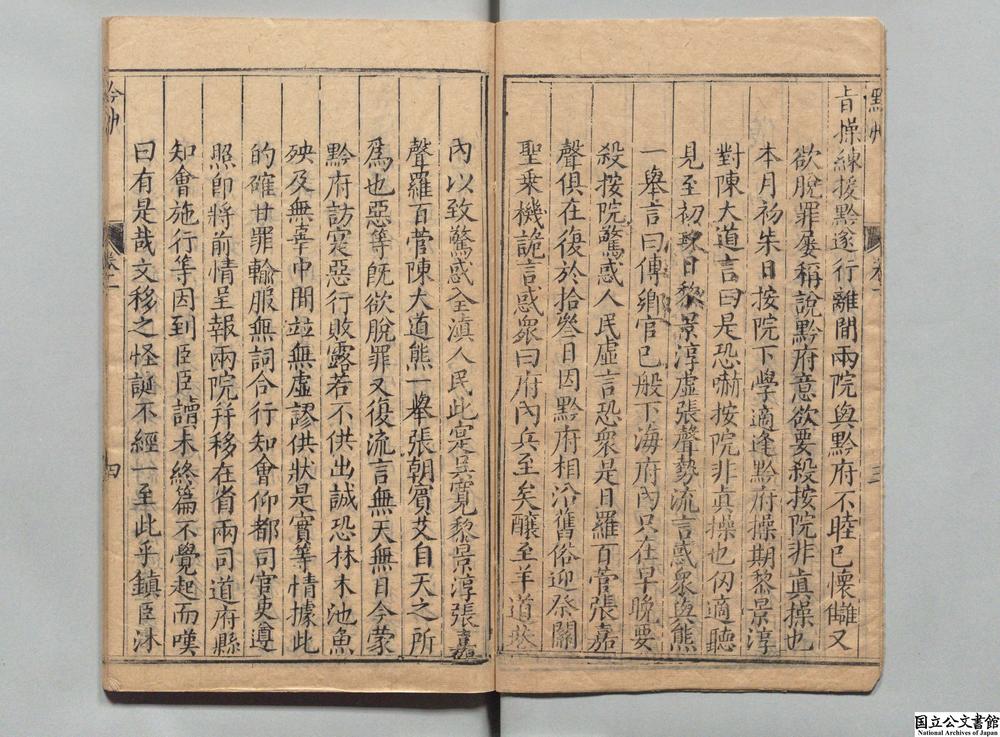 旨操練援黔遂行離間兩院與黔府不睦已懷讎又
欲脫罪屢稱說黔府意欲要殺按院非眞操也
本月初柒日按院下學適逢黔府操期黎景淳
對陳大道言曰是恐嚇按院非眞操也仭適聽
見至初捌日黎景淳虛張聲勢流言惑衆與熊
一舉言曰傳鄉官已般下海府內只在早晚要
殺按院驚惑人民虛言恐衆是日羅百管張嘉
聲俱在復於拾叄日因黔府相沿舊俗迎祭關
聖乘機詭言惑衆曰府內兵至矣釀至羊道
內以致驚惑全滇人民此寔吳寬黎景淳張嘉
聲羅百菅陳大道熊一舉張朝賔艾自天之所
爲也惡等旣欲脫罪又復流言無天無日今蒙
黔府訪寔惡行敗露若不供出誠恐林木池魚
殃及無辜中間並無虛謬供狀是實等情據此
的確甘罪輸服無詞合行知會仰都司官吏遵
照卽將前情呈報兩院幷移在省兩司道府縣
知會施行等因到臣臣讀未終篇不覺起而嘆
曰有是哉文移之怪誕不經一至此乎鎮臣沐
卷二
三
卷二
四
国立公文書館
National Archives of Japan